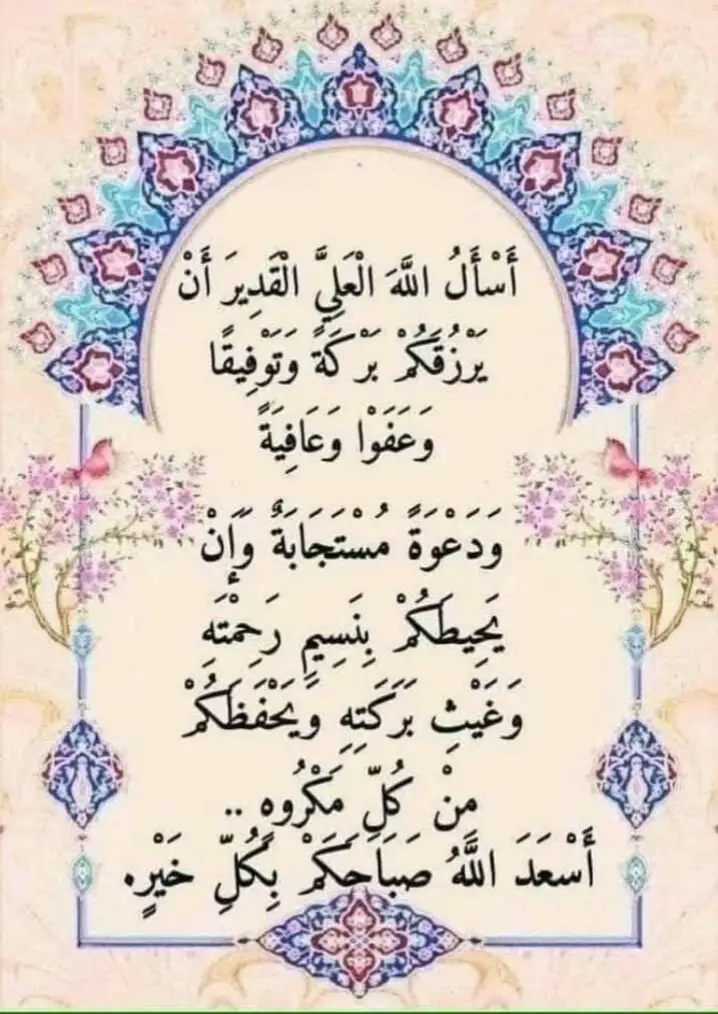 أَسْأَلُ اللَّهَ الْعَلِيَّ الْقَدِيرَ أَنْ
يَرْزُقَكُمْ بَرْكَةً وَتَوْفِيقًا
وَعَفَوْا وَعَافِيَةً
وَدَعْوَةً مُسْتَجَابَةٌ وَإِنْ
يَحِيطَكُمْ بِنَسِيمِ رَحِمْتَهِ
وَغَيْثِ بَرَكَتِهِ وَيَحْفَظَكُمْ
مِنْ كُلِّ مَكْرُوهٍ ..
أَسْعَدَ اللَّهُ صَبَاحَكَمْ بِكُلِّ خَيْرٍ.